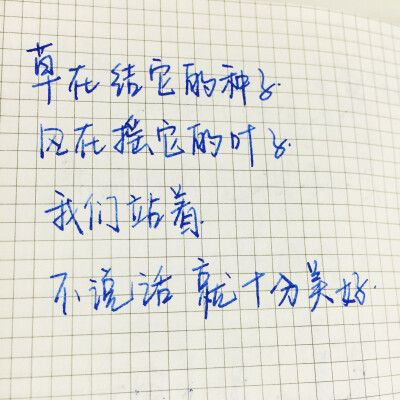 草在结它的种子.
风在摇它的叶子.
我们站着.
不说话 就十分美好.